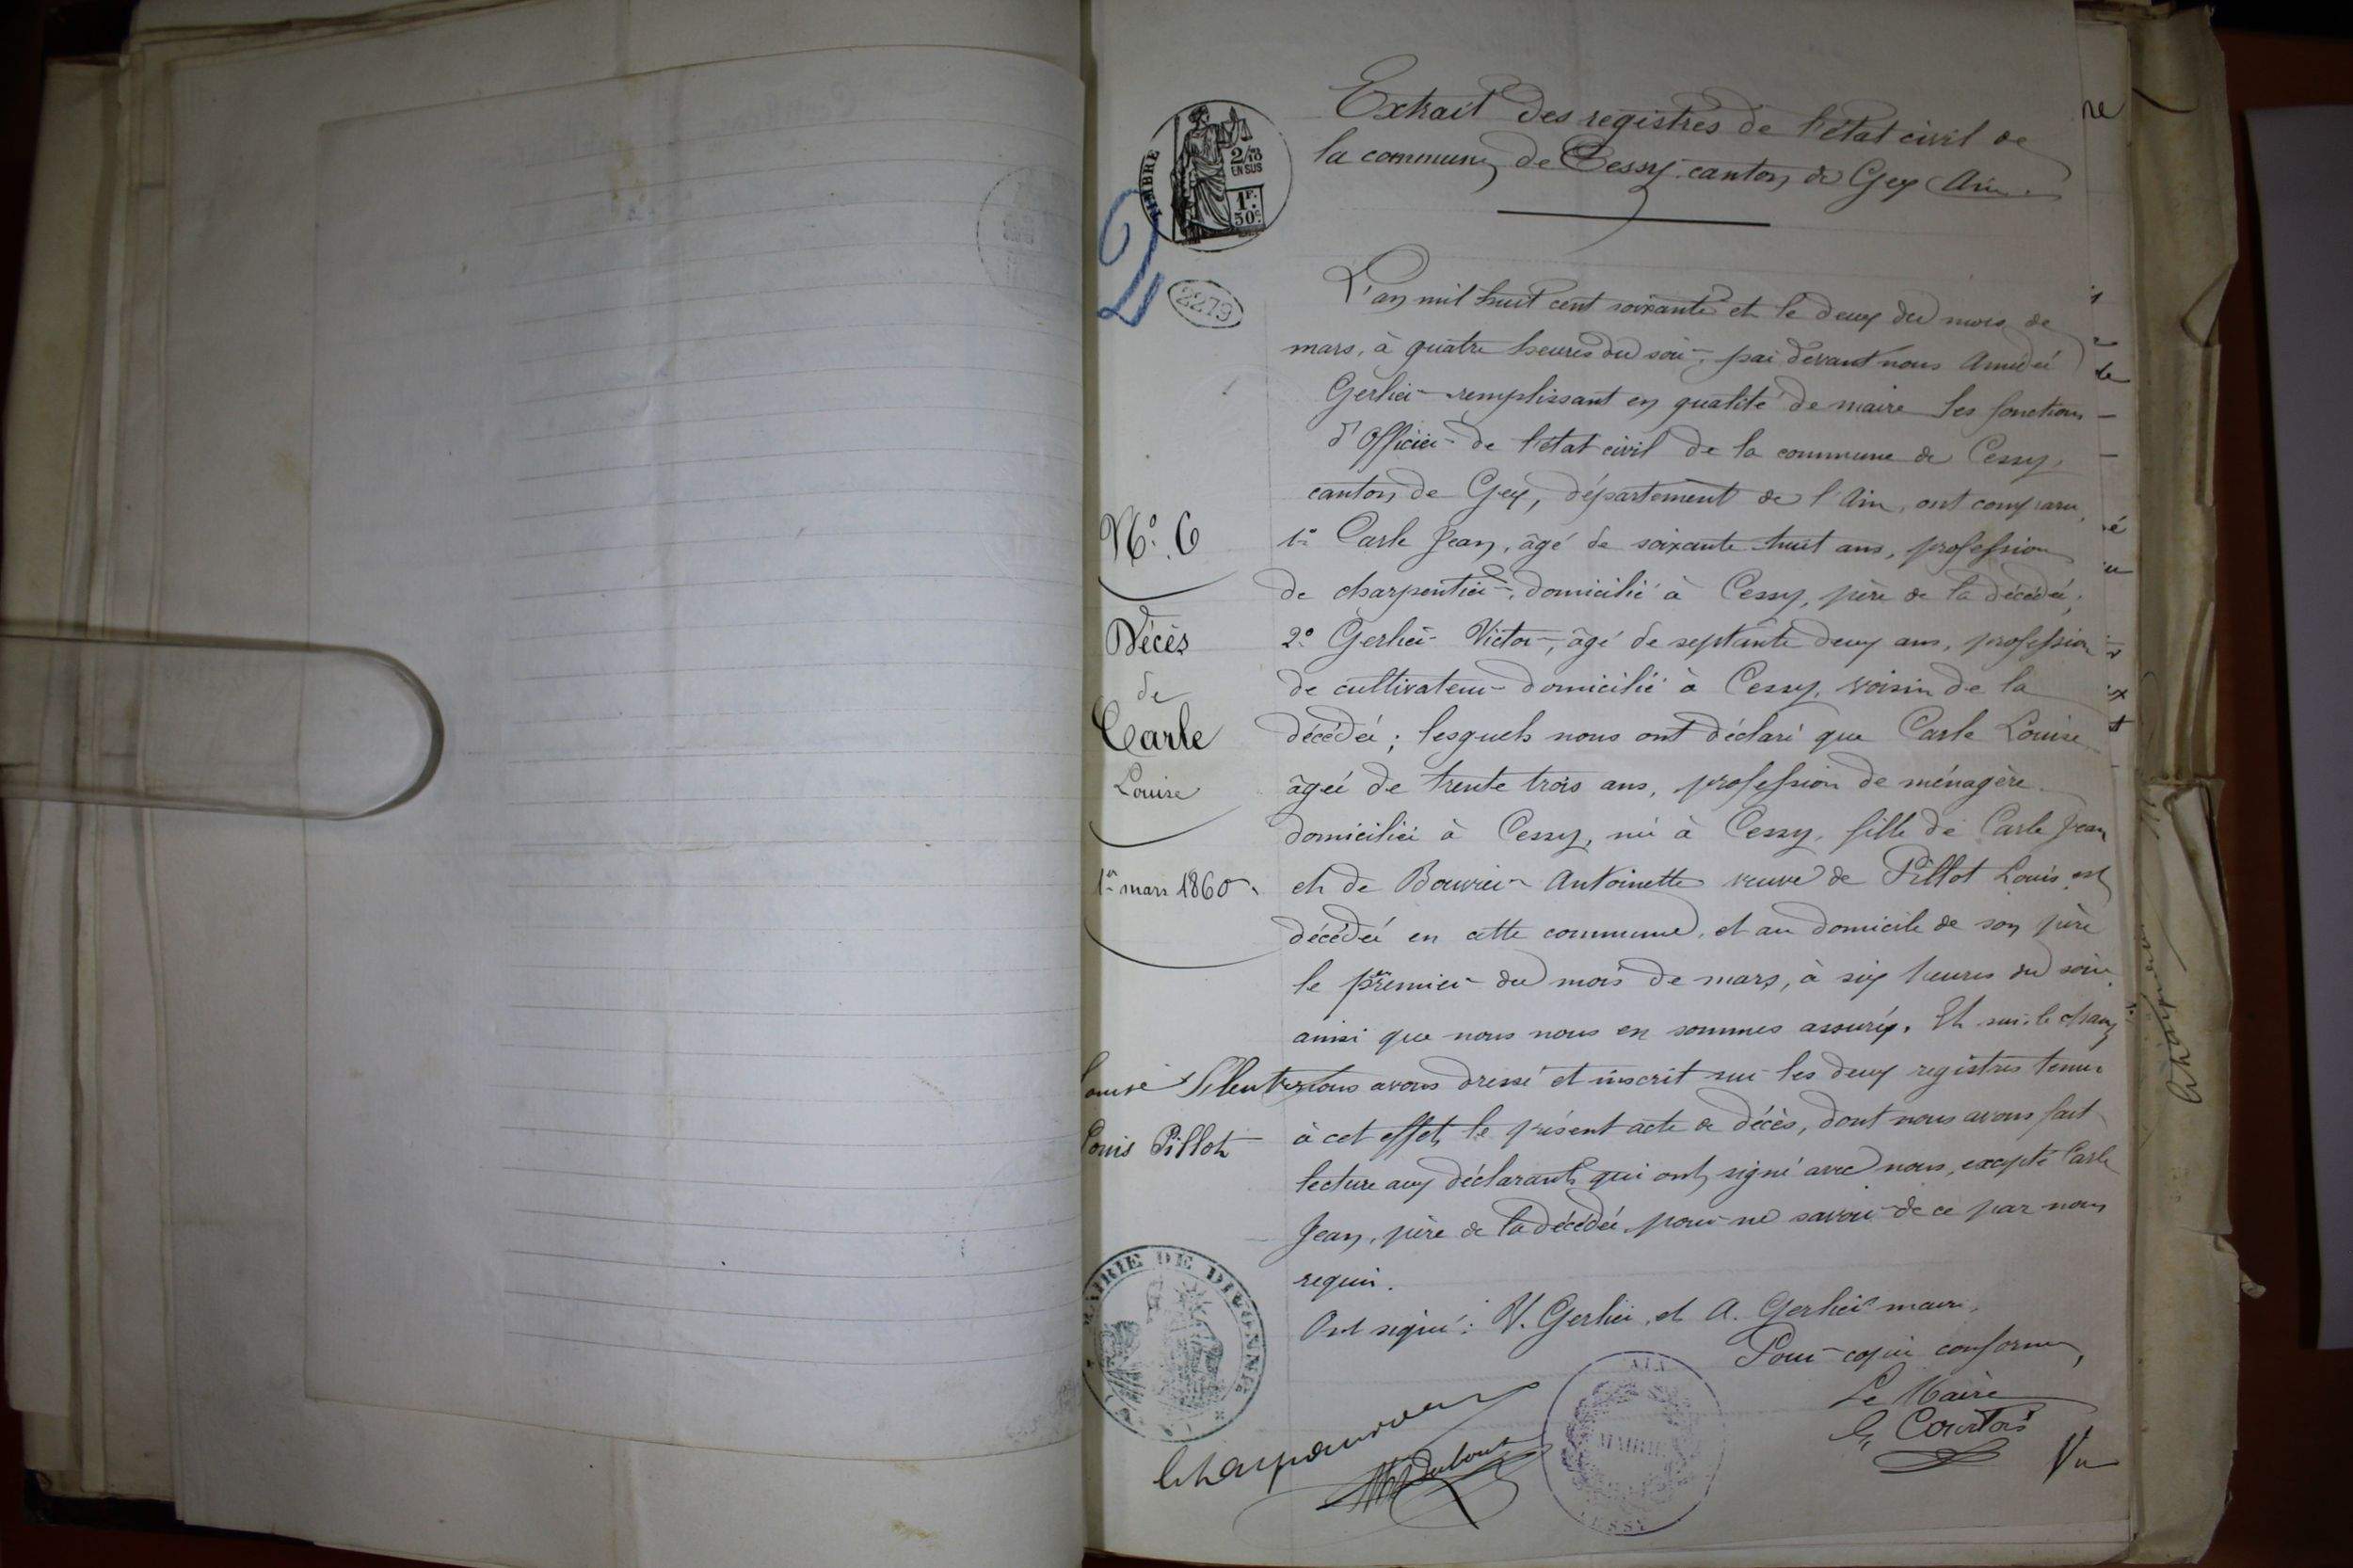 Extrait des registres de l'état civil de
la commune de Cessy canton de Gex Ain.
TIMBRE
2/10
EN SUS
1F.
50c.
2
2279
L'an mil huit cent soixante et le deux du mois de
mars, à quatre heures du soir, par devant nous Amédée
Gerlier remplissant en qualité de maire les fonctions
d'Officier de l'état civil de la commune de Cessy,
canton de Gex, département de l'Ain, ont comparu
1° Carle Jean, âgé de soixante huit ans, profession
de charpentier, domicilié à Cessy, père de la décédée;
2° Gerlier Victor, âgé de septante deux ans, profession
de cultivateur domicilié à Cessy, voisin de la
décédée; lesquels nous ont déclaré que Carle Louise
âgée de trente trois ans, profession de ménagère
domiciliée à Cessy, née à Cessy, fille de Carle Jean
et de Bouvier Antoinette veuve de Pillot Louis est
décédée en cette commune, et au domicile de son père
le premier du mois de mars, à six heures du soir,
ainsi que nous nous en sommes assurés. Et sur le champ
nous avons dressé et inscrit sur les deux registres tenus
à cet effet, le présent acte de décès, dont nous avons fait
lecture aux déclarants qui ont signé avec nous, excepté Carle
Jean, père de la décédée pour ne savoir de ce par nous
requis.
Ont signé: V. Gerlier, et A. Gerlier maire.
Pour copie conforme,
Le Maire
Courtois
Vu
N° 6
Décès
de
Carle
Louise
1er mars 1860.
Louis Pillot
MAIRIE DE DIVONNE
AIN
MAIRIE
CESSY
Dubout